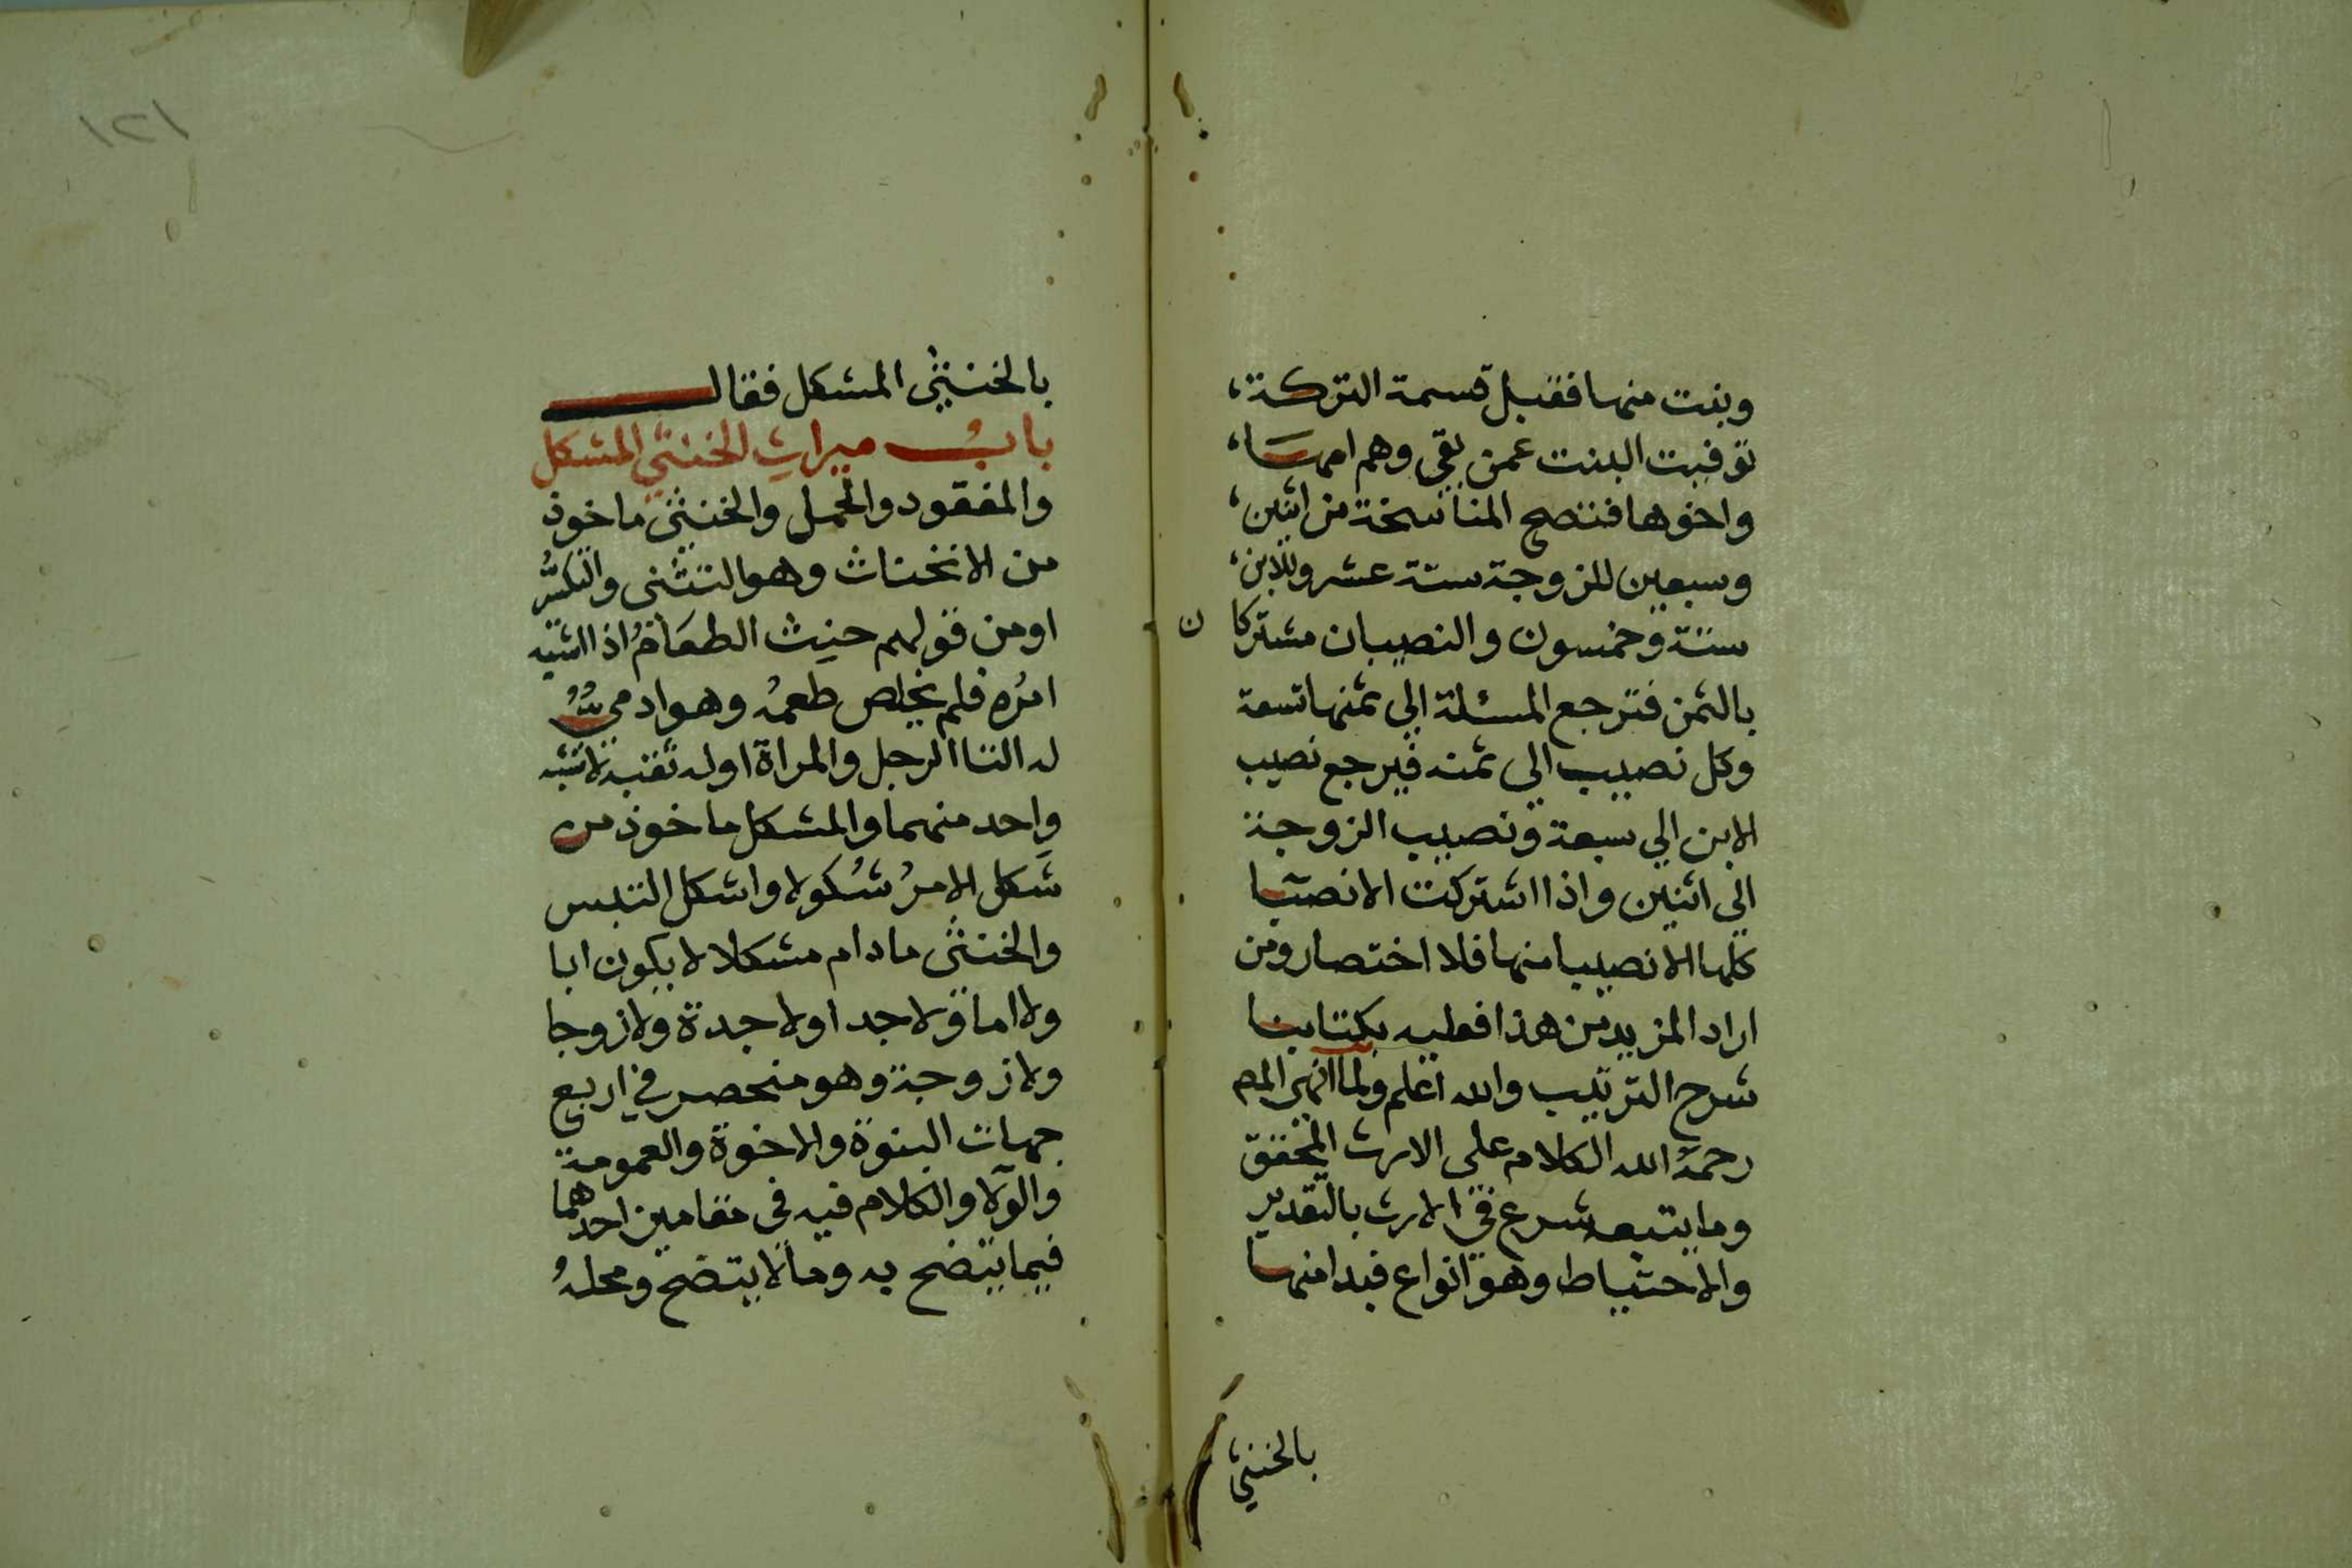 وبنت منها فقبل قسمة التركة،
توفيت البنت عمن بقي وهم امها،
واخوها فتصح المناسخة من اثنين،
وسبعين للزوجة ستة عشر وللابن،
ستة وخمسون والنصيبان مشتركا ن
بالثمن فترجع المسئلة الي ثمنها تسعة
وكل نصيب الى ثمنه فيرجع نصيب
الابن الي سبعة ونصيب الزوجة
الي اثنين واذا اشتركت الانصبا
كلها الا نصيبا منها فلا اختصار ومن
اراد المزيد من هذا فعليه بكتابنا
شرح الترتيب والله اعلم ولما انهى المص
رحمة الله الكلام على الارث المحقق
وما يتبعه شرع في الارث بالتقدير
والاحتياط وهو انواع فبدا منها
بالخنثي
١٢١
بالخنثي المشكل فقال
باب ميراث الخنثي المشكل
والمفقود والحمل والخنثى ماخوذ
من الانخناث وهو التثنى والتكسر
او من قولهم خنث الطعام اذا اشتبه
امره فلم يخلص طعمه وهو ادمي
له التا الرجل والمراة اوله ثقبة لا تشبه
واحد منهما والمشكل ماخوذ من
شكل الامر شكولا واشكل التبس
والخنثى مادام مشكلا لا يكون ابا
ولا اما ولا جدا ولا جدة ولا زوجا
ولا زوجة وهو منحصر في اربع
جهات البنوة والاخوة والعمومة
والولاء والكلام فيه في مقامين احدهما
فيما يتضح به وما لا يتضح ومحله